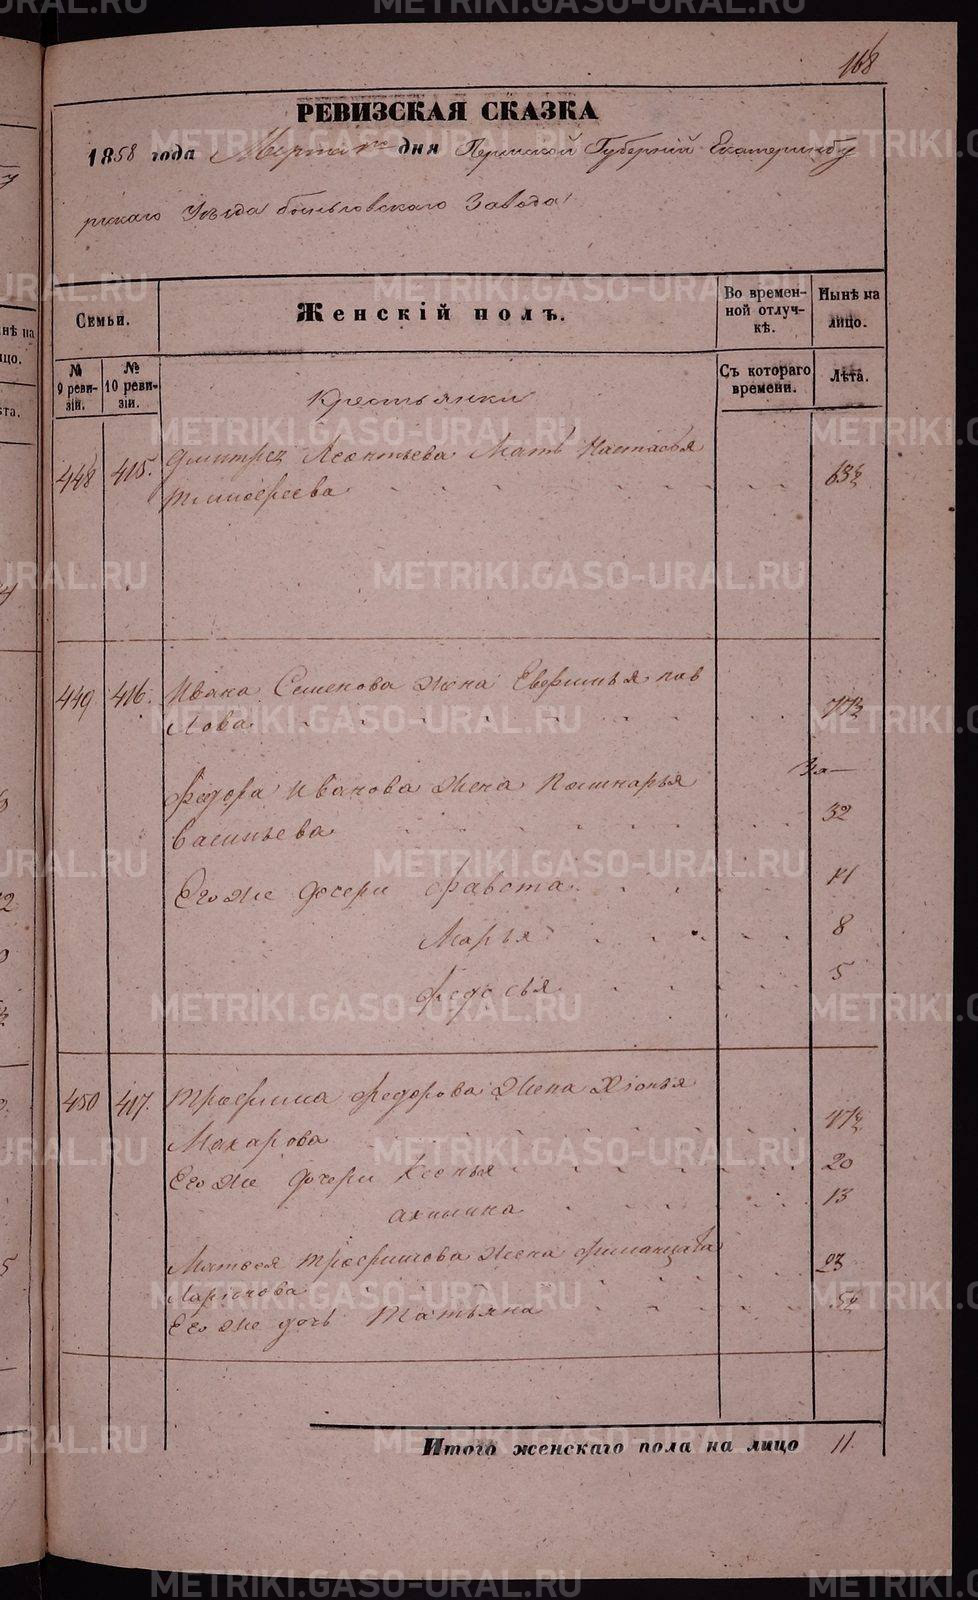 168
РЕВИЗСКАЯ СКАЗКА
1858 года Марта дня Пермской Губерній Екатеринбу
ргскаго Уезда Завода
Семьи.
Женскій полъ.
Во времен-
ной отлуч-
кѣ.
Нынѣ на
лицо.
№
9 реви-
зіи.
№
10 реви-
зіи.
Съ котораго
времени.
Лѣта.
Крестьянки
448 415. Дмитрея Леонтьева Мать Настасья
Тимоѳеева 63½
449 416. Ивана Семенова Жена Евфимья пав
лова
Федора Иванова Жена
Васильева 32
Его же дочери 11
Марья 8
Федосья 5
450 417. Трофима Федорова Жена Хіонья
Макарова 47½
Его же дочери Ксенья 20
акилина 13
Матвея Трофимова Жена
Ларіонова 23
Его же дочь Татьяна 5½
Итого женскаго пола на лицо 11.
METRIKI.GASO-URAL.RU